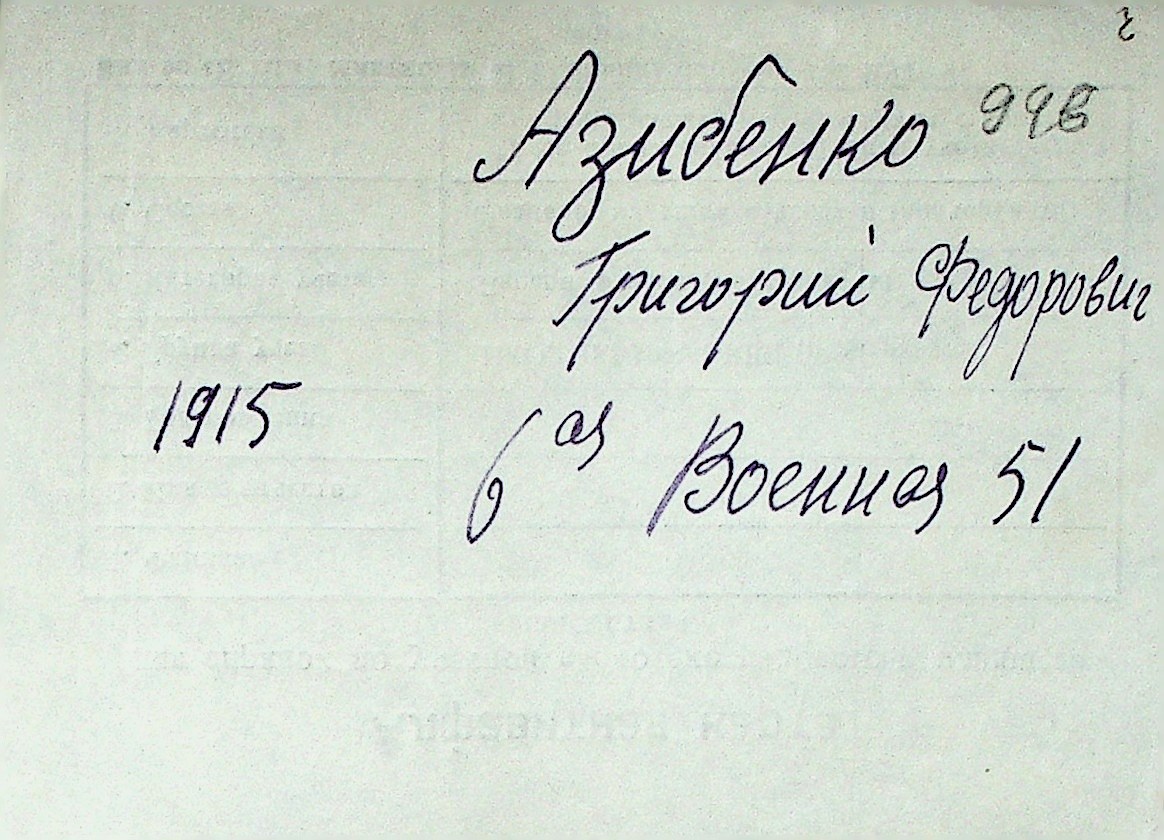 Азибенко
Григорий Федорович
1915
6ая Военная 51